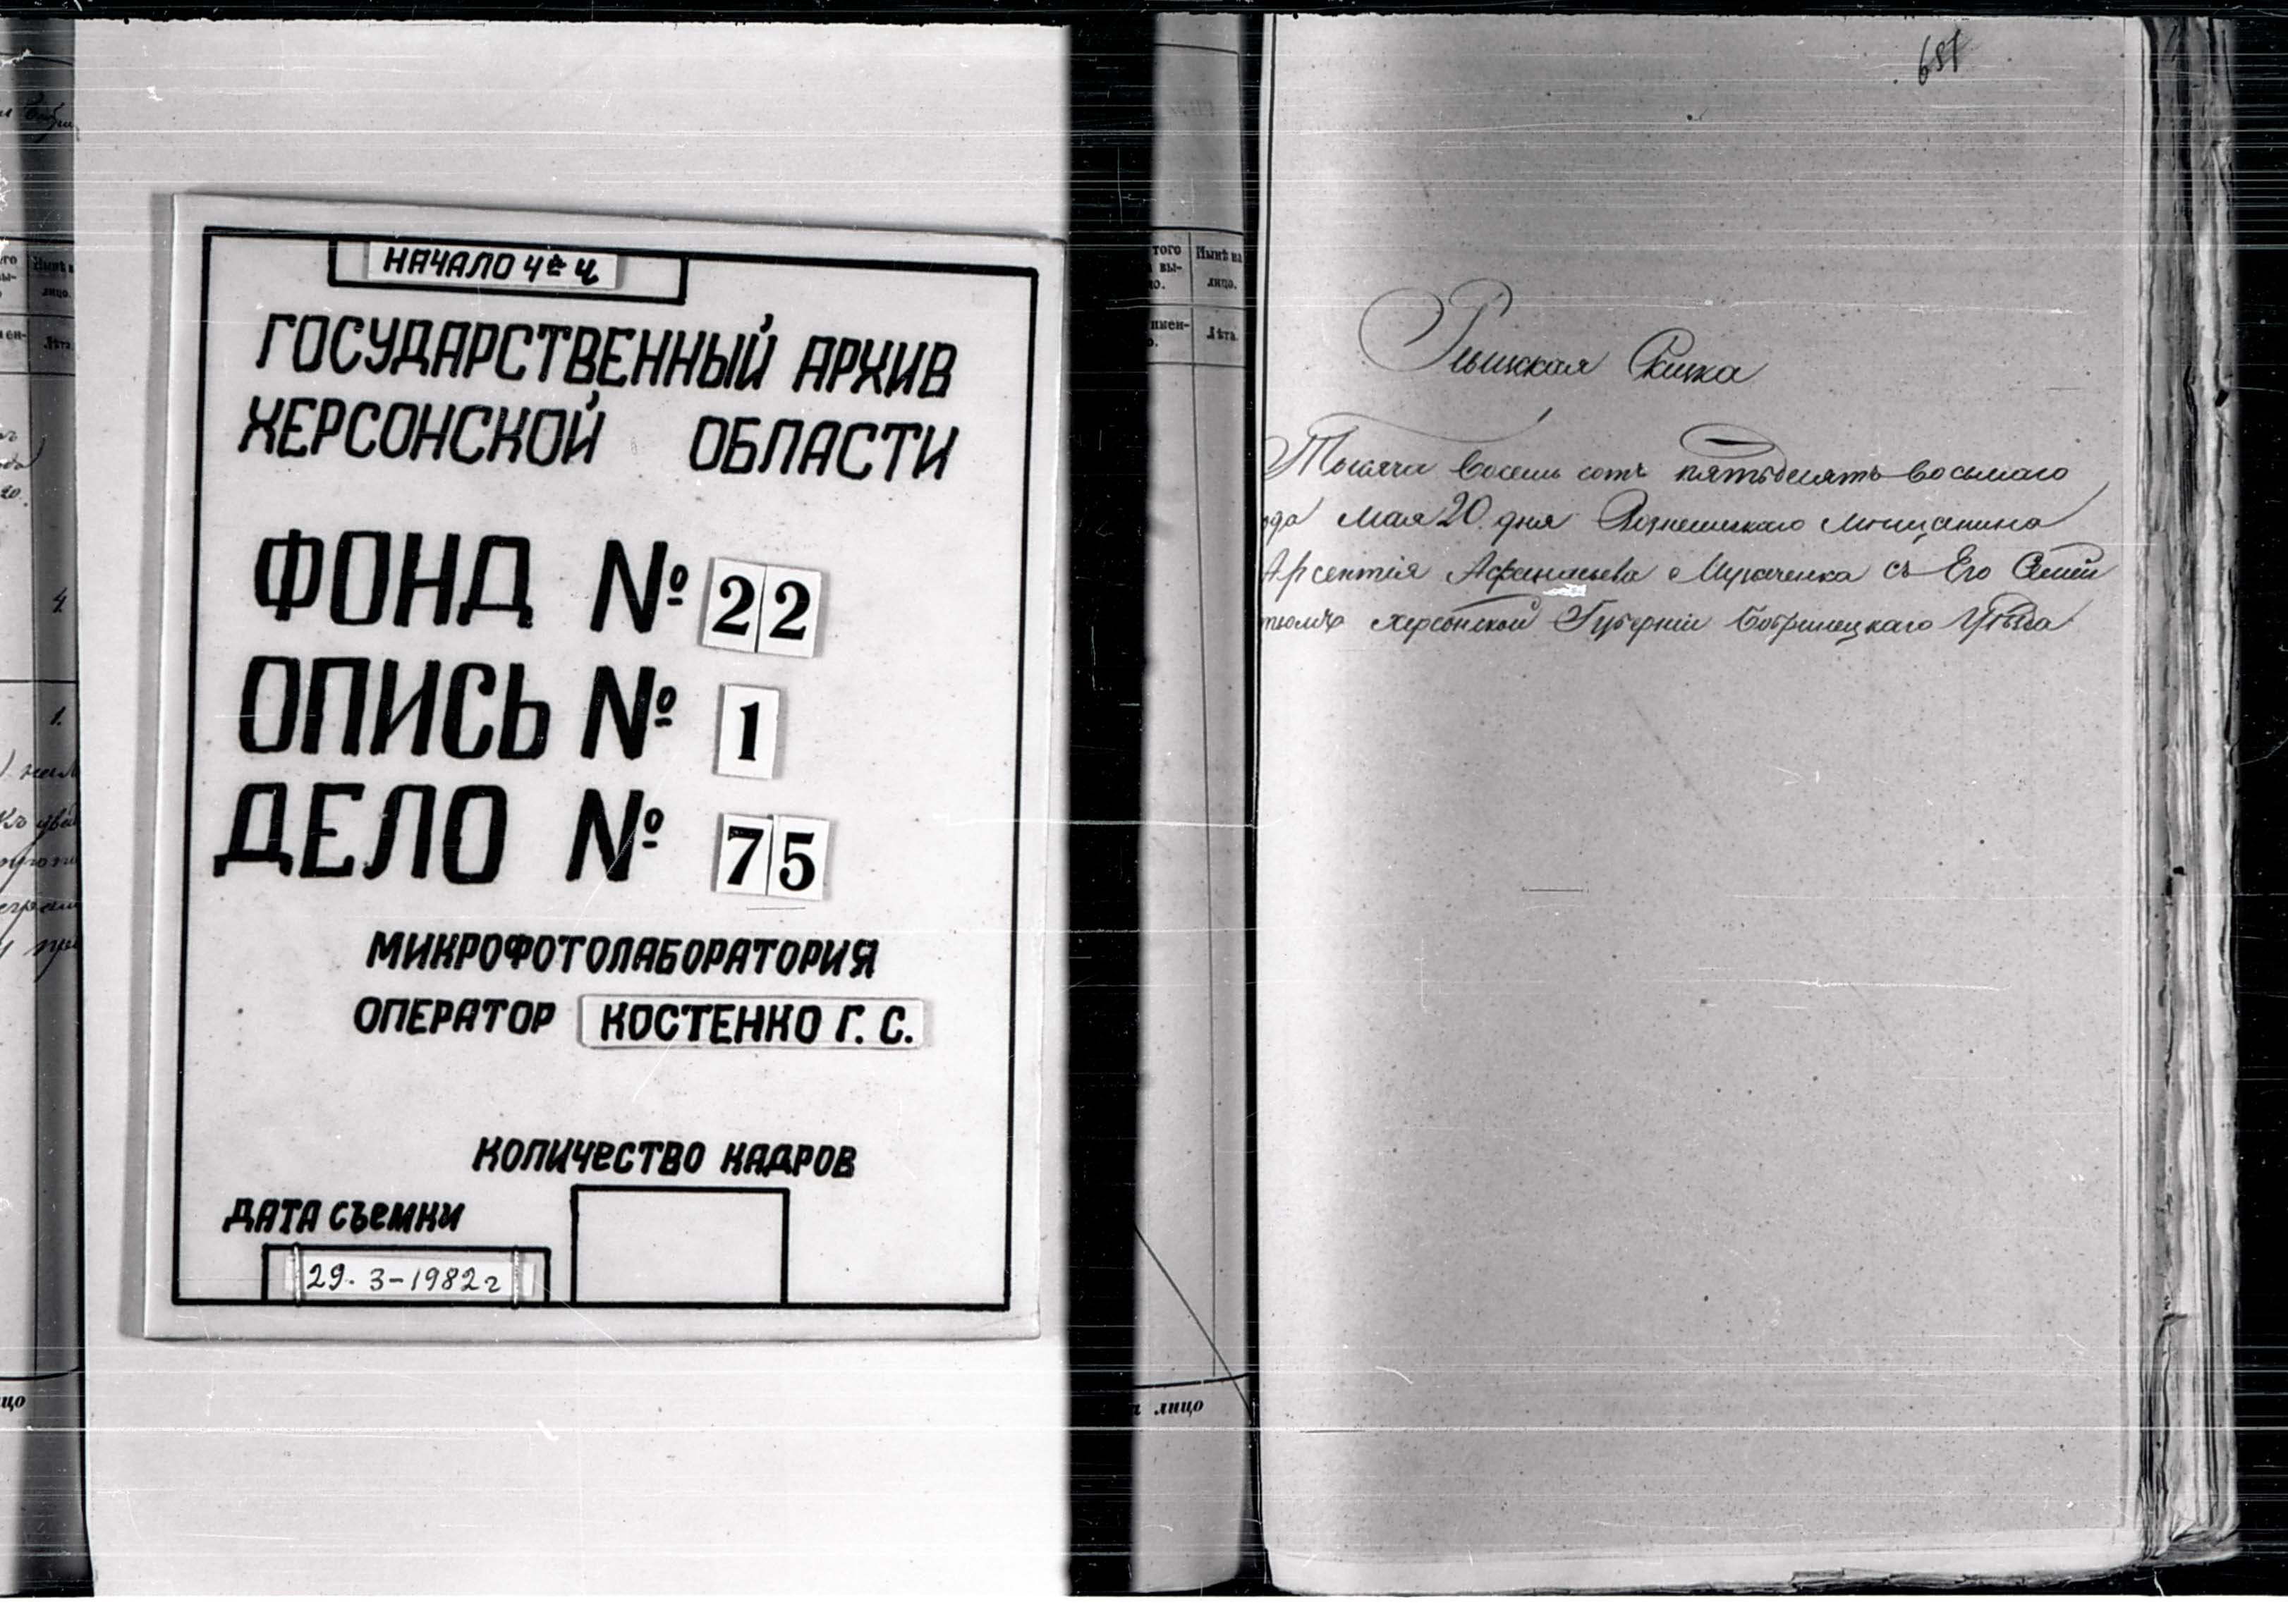 НАЧАЛО 4й Ч
ГОСУДАРСТВЕННЫЙ АРХИВ
ХЕРСОНСКОЙ ОБЛАСТИ
ФОНД № 22
ОПИСЬ № 1
ДЕЛО № 75
МИКРОФОТОЛАБОРАТОРИЯ
ОПЕРАТОР КОСТЕНКО Г. С.
КОЛИЧЕСТВО КАДРОВ
ДАТА СЪЕМКИ
29. 3-1982 г
того
вы-
Нынѣ на
лицо.
Лѣта.
лицо
Сказка
Тысяча восемь сотъ пятьдесятъ восьмаго
Мая 20 дня Вознесенскаго мещанина
Арсентія Афанасьева съ Его
Херсонской Губерніи Бобринецкаго Уѣзда